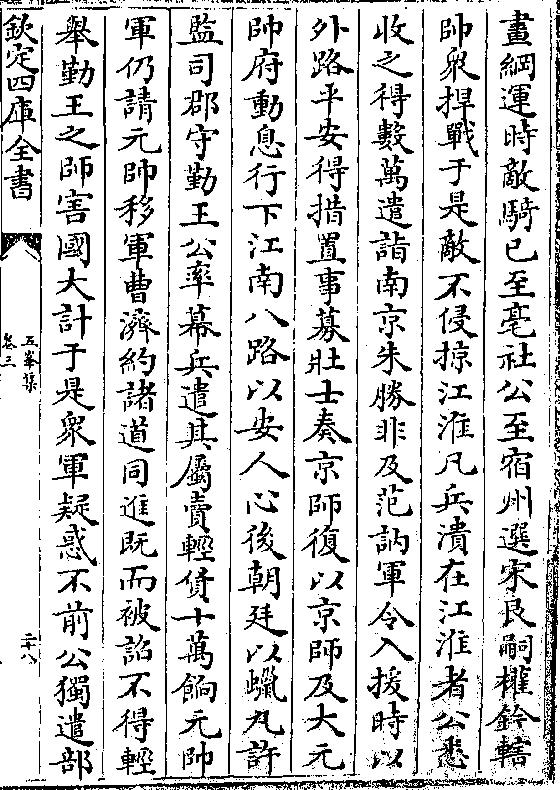 畫綱運時敵騎已至亳社公至宿州選宋艮嗣權鈐轄
帥衆捍戰于是敵不侵掠江淮凡兵潰在江淮者公悉
收之得數萬遣詣南京朱勝非及范訥軍令入援時以
外路平安得措置事募壯士奏京師復以京師及大元
帥府動息行下江南八路以安人心後朝廷以蠟丸許
監司郡守勤王公率幕兵遣其屬賣輕賃十萬餉元帥
軍仍請元帥移軍曹濟約諸道同進既而被詔不得輕
舉勤王之師害國大計于是衆軍疑惑不前公獨遣部
欽定四庫全書
五峯集
卷三
二十八